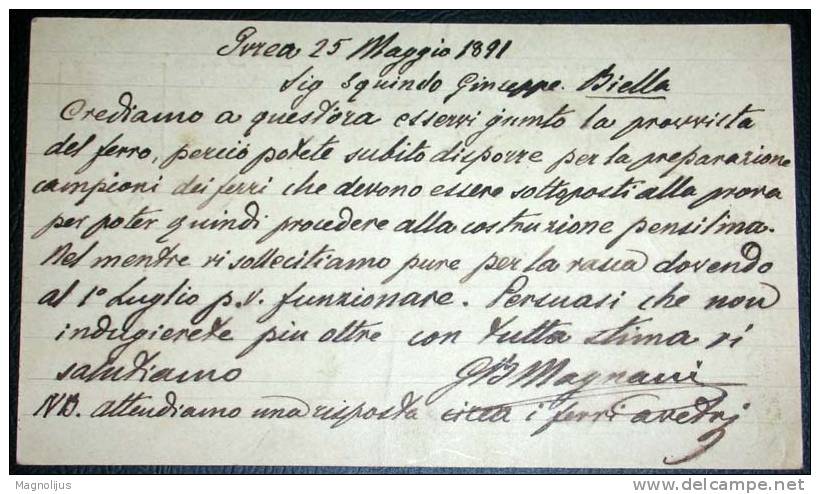 Ivrea 25 Maggio 1891
Sig Squindo Giuseppe. Biella
Crediamo a quest'ora esservi giunto la provvista
del ferro, perciò potete subito disporre per la preparazione
campioni dei ferri che devono essere sottoposti alla prova
per poter quindi procedere alla costruzione pensilina.
Nel mentre vi sollecitiamo pure per la vasca dovendo
al 1° Luglio p.v. funzionare. Persuasi che non
indugierete piu oltre con tutta stima vi
salutiamo Magnani
NB. attendiamo una risposta circa i ferri a vetri
Magnolijus
delcampe.net